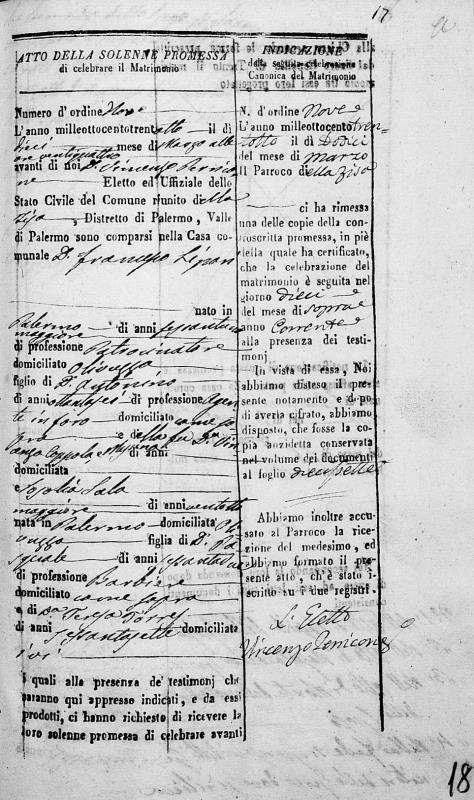 17
ATTO DELLA SOLENNE PROMESSA
di celebrare il Matrimonio
Numero d'ordine Nove
L'anno milleottocentotrentotto il dì
dieci mese di Marzo alle
ore ventiquattro
avanti di noi D. Vincenzo Pernico
ne Eletto ed Uffiziale dello
Stato Civile del Comune riunito della
Zisa, Distretto di Palermo, Valle
di Palermo sono comparsi nella Casa co-
munale D. Francesco
nato in
Palermo di anni
maggiore
di professione Patrocinatore
domiciliato Olivuzza
figlio di D. Antonino
di anni di professione Agen
te in foro domiciliato come so
pra e della fu D.a Vin
cenza Coppola di anni
domiciliata
e Sofia Sala
maggiore di anni ventotto
nata in Palermo domiciliata Oli
vuzza figlia di D. Pa
squale di anni
di professione Barbiere
domiciliato come sopra
e di D.a Teresa Torres
di anni domiciliata
ivi
i quali alla presenza de' testimonj che
saranno qui appresso indicati, e da essi
prodotti, ci hanno richiesto di ricevere la
loro solenne promessa di celebrare avanti
INDICAZIONE
della seguita celebrazione
Canonica del Matrimonio
N. d'ordine Nove
L'anno milleottocentotren-
totto il dì Dodici
del mese di Marzo
Il Parroco della Zisa
ci ha rimessa
una delle copie della con-
troscritta promessa, in piè
della quale ha certificato,
che la celebrazione del
matrimonio è seguita nel
giorno dieci
del mese di sopra
anno Corrente
alla presenza dei testi-
monj
In vista di essa, Noi
abbiamo disteso il pre-
sente notamento e dopo
di averla cifrato, abbiamo
disposto, che fosse la co-
pia anzidetta conservata
nel volume dei documenti
al foglio diecisette
Abbiamo inoltre accu-
sato al Parroco la rice-
zione del medesimo, ed
abbiamo formato il pre-
sente atto, ch'è stato i-
scritto su i due registri.
L'Eletto
Vincenzo Pernicone
18